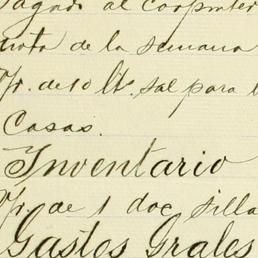 Pagado al carpintero
nota de la semana
Vr. de 10 lt. sal para l
Casas.
Inventario
Vr. de 1 doc silla
Gastos Grales